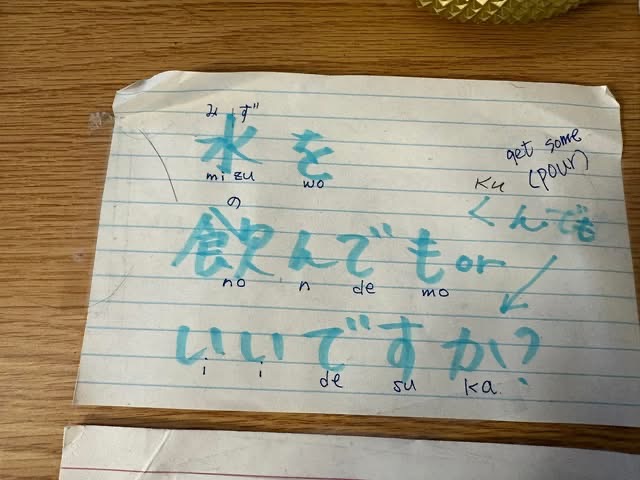 みず
水を
mi zu wo
get some
(pour)
Ku
くんでも
の
飲んでも or
no n de mo
いいですか?
i i de su ka.